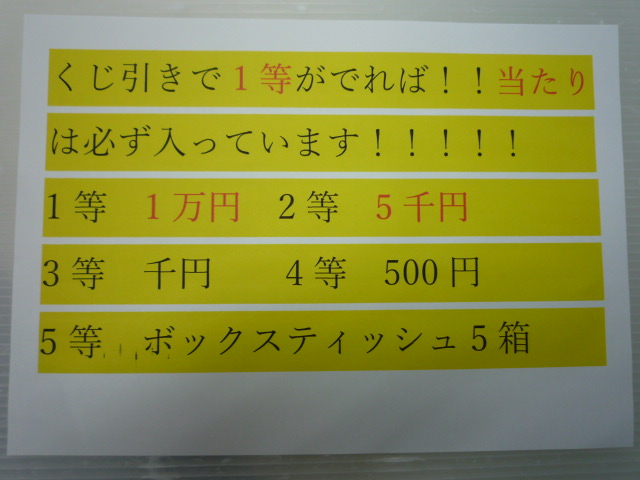 くじ引きで１等がでれば！！当たり
は必ず入っています！！！！！
１等　１万円　２等　５千円
３等　千円　　４等　500円
５等　ボックスティッシュ５箱